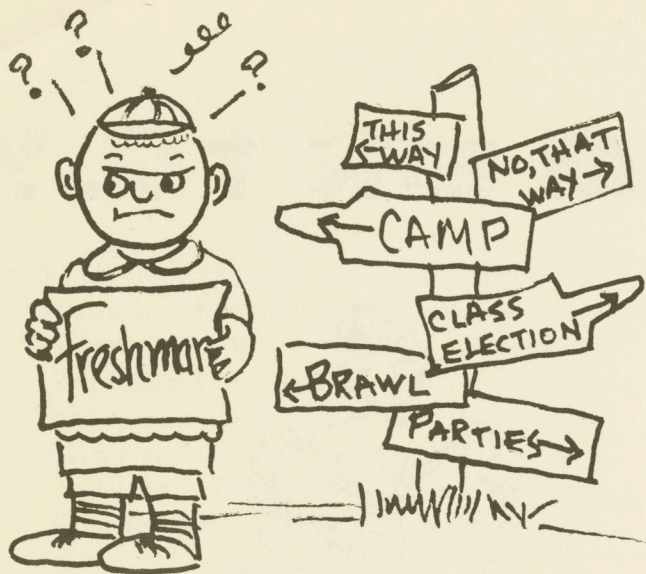 ? ? ? ?
freshman
THIS
WAY
NO, THAT
WAY
CAMP
CLASS
ELECTION
BRAWL
PARTIES